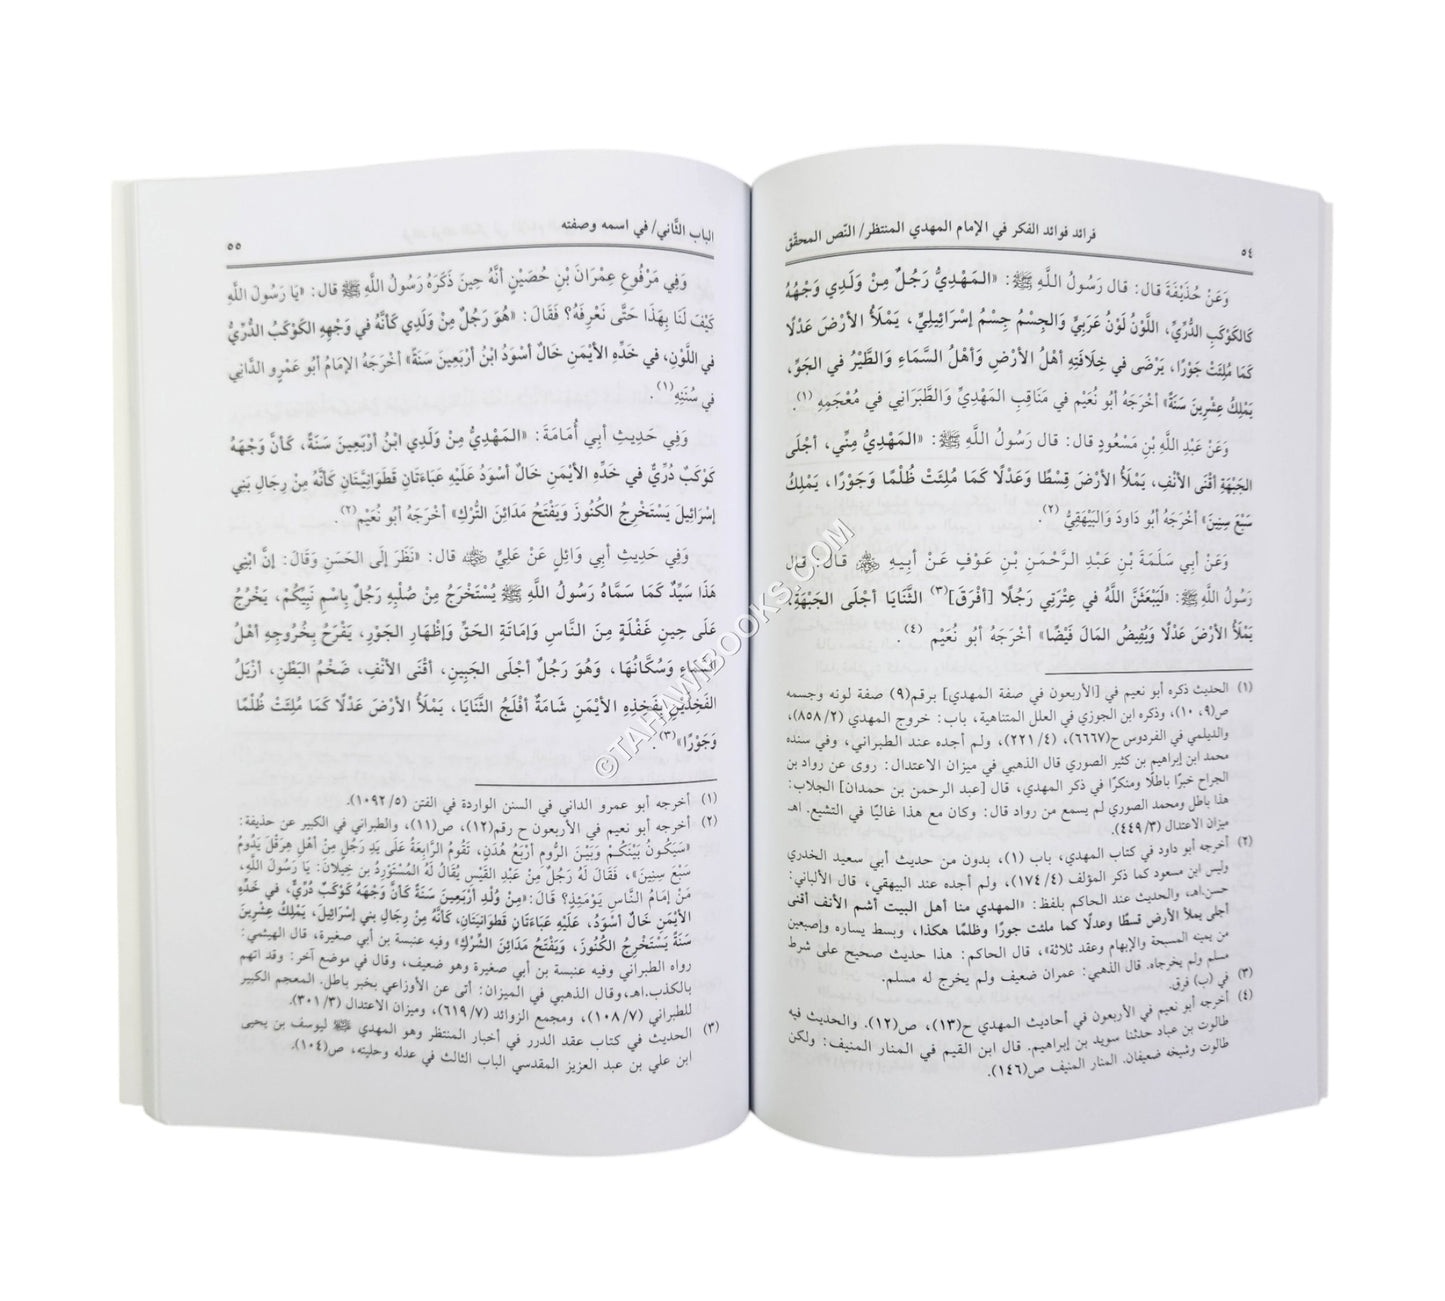 فرائد فوائد الفكر في الإمام المهدي المنتظر/ النّص المحقّق
٥٤
وَعَنْ حُذَيْفَةَ قال: قال رَسُولُ اللَّهِ ﷺ: «المَهْدِيُّ رَجُلٌ مِنْ وَلَدِي وَجْهُهُ
كَالكَوْكَبِ الدُّرِّيِّ، اللَّوْنُ لَوْنُ عَرَبِيٍّ وَالجِسْمُ جِسْمُ إسْرَائِيلِيٍّ، يَمْلَأُ الأرْضَ عَدْلًا
كَمَا مُلِئَتْ جَوْرًا، يَرْضَى في خِلَافَتِهِ أهْلُ الأرْضِ وَأهْلُ السَّمَاءِ وَالطَّيْرُ في الجَوِّ،
يَمْلِكُ عِشْرِينَ سَنَةً» أخْرَجَهُ أبُو نُعَيْمٍ في مَنَاقِبِ المَهْدِيِّ وَالطَّبَرَانِي في مُعْجَمِهِ (١).
وَعَنْ عَبْدِ اللَّهِ بْنِ مَسْعُودٍ قال: قال رَسُولُ اللَّهِ ﷺ: «المَهْدِيُّ مِنِّي، أجْلَى
الجَبْهَةِ أقْنَى الأنْفِ، يَمْلَأُ الأرْضَ قِسْطًا وَعَدْلًا كَمَا مُلِئَتْ ظُلْمًا وَجَوْرًا، يَمْلِكُ
سَبْعَ سِنِينَ» أخْرَجَهُ أبُو دَاودَ وَالبَيْهَقِيُّ (٢).
وَعَنْ أبِي سَلَمَةَ بْنِ عَبْدِ الرَّحْمَنِ بْنِ عَوْفٍ عَنْ أبِيهِ ﵁ قَالَ: قال
رَسُولُ اللَّهِ ﷺ: «لَيَبْعَثَنَّ اللَّهُ في عِتْرَتِي رَجُلًا [أفْرَقَ](٣) الثَّنَايَا أجْلَى الجَبْهَةِ،
يَمْلَأُ الأرْضَ عَدْلًا وَيُفِيضُ المَالَ فَيْضًا» أخْرَجَهُ أبُو نُعَيْمٍ (٤).
(١) الحديث ذكره أبو نعيم في [الأربعون في صفة المهدي] برقم(٩) صفة لونه وجسمه
ص(٩، ١٠)، وذكره ابن الجوزي في العلل المتناهية، باب: خروج المهدي (٨٥٨/٢)،
والديلمي في الفردوس ح(٦٦٦٧)، (٢٢١/٤)، ولم أجده عند الطبراني، وفي سنده
محمد ابن إبراهيم بن كثير الصوري قال الذهبي في ميزان الاعتدال: روى عن رواد بن
الجراح خبرًا باطلًا ومنكرًا في ذكر المهدي، قال [عبد الرحمن بن حمدان] الجلاب:
هذا باطل ومحمد الصوري لم يسمع من رواد قال: وكان مع هذا غاليًا في التشيع. اهـ
ميزان الاعتدال (٤٤٩/٣).
(٢) أخرجه أبو داود في كتاب المهدي، باب (١)، بدون من حديث أبي سعيد الخدري
وليس ابن مسعود كما ذكر المؤلف (١٧٤/٤)، ولم أجده عند البيهقي، قال الألباني:
حسن.اهـ، والحديث عند الحاكم بلفظ: «المهدي منا أهل البيت أشم الأنف أقنى
أجلى يملأ الأرض قسطًا وعدلًا كما ملئت جورًا وظلمًا هكذا، وبسط يساره وإصبعين
من يمينه المسبحة والإبهام وعقد ثلاثة»، قال الحاكم: هذا حديث صحيح على شرط
مسلم ولم يخرجاه. قال الذهبي: عمران ضعيف ولم يخرج له مسلم.
(٣) في (ب) فرق.
(٤) أخرجه أبو نعيم في الأربعون في أحاديث المهدي ح(١٣)، ص(١٢). والحديث فيه
طالوت بن عباد حدثنا سويد بن إبراهيم. قال ابن القيم في المنار المنيف: ولكن
طالوت وشيخه ضعيفان. المنار المنيف ص(١٤٦).
الباب الثَّاني/ في اسمه وصفته
٥٥
وَفِي مَرْفُوعِ عِمْرَانَ بْنِ حُصَيْنٍ أنَّهُ حِينَ ذَكَرَهُ رَسُولُ اللَّهِ ﷺ قال: «يَا رَسُولَ اللَّهِ
كَيْفَ لَنَا بِهَذَا حَتَّى نَعْرِفَهُ؟ فَقَالَ: «هُوَ رَجُلٌ مِنْ وَلَدِي كَأنَّهُ في وَجْهِهِ الكَوْكَبُ الدُّرِّيُّ
في اللَّوْنِ، في خَدِّهِ الأيْمَنِ خَالٌ أسْوَدُ ابْنُ أرْبَعِينَ سَنَةً» أخْرَجَهُ الإمَامُ أبُو عَمْرٍو الدَّانِي
في سُنَنِهِ (١).
وَفِي حَدِيثِ أبِي أُمَامَةَ: «المَهْدِيُّ مِنْ وَلَدِي ابْنُ أرْبَعِينَ سَنَةً، كَأنَّ وَجْهَهُ
كَوْكَبٌ دُرِّيٌّ في خَدِّهِ الأيْمَنِ خَالٌ أسْوَدُ عَلَيْهِ عَبَاءَتَانِ قَطَوَانِيَّتَانِ كَأنَّهُ مِنْ رِجَالِ بَنِي
إسْرَائِيلَ يَسْتَخْرِجُ الكُنُوزَ وَيَفْتَحُ مَدَائِنَ التُّرْكِ» أخْرَجَهُ أبُو نُعَيْمٍ (٢).
وَفِي حَدِيثِ أبِي وَائِلٍ عَنْ عَلِيٍّ ﵁ قال: «نَظَرَ إلَى الحَسَنِ وَقَالَ: إنَّ ابْنِي
هَذَا سَيِّدٌ كَمَا سَمَّاهُ رَسُولُ اللَّهِ ﷺ يُسْتَخْرَجُ مِنْ صُلْبِهِ رَجُلٌ بِاسْمِ نَبِيِّكُمْ، يَخْرُجُ
عَلَى حِينِ غَفْلَةٍ مِنَ النَّاسِ وَإمَاتَةِ الحَقِّ وَإظْهَارِ الجَوْرِ، يَفْرَحُ بِخُرُوجِهِ أهْلُ
السَّمَاءِ وَسُكَّانُهَا، وَهُوَ رَجُلٌ أجْلَى الجَبِينِ، أقْنَى الأنْفِ، ضَخْمُ البَطْنِ، أزْيَلُ
الفَخِذَيْنِ بِفَخِذِهِ الأيْمَنِ شَامَةٌ أفْلَجُ الثَّنَايَا، يَمْلَأُ الأرْضَ عَدْلًا كَمَا مُلِئَتْ ظُلْمًا
وَجَوْرًا»(٣).
(١) أخرجه أبو عمرو الداني في السنن الواردة في الفتن (١٠٩٢/٥).
(٢) أخرجه أبو نعيم في الأربعون ح رقم(١٢)، ص(١١)، والطبراني في الكبير عن حذيفة:
«سَيَكُونُ بَيْنَكُمْ وَبَيْنَ الرُّومِ أرْبَعُ هُدَنٍ، تَقُومُ الرَّابِعَةُ عَلَى يَدِ رَجُلٍ مِنْ أهْلِ هِرَقْلَ يَدُومُ
سَبْعَ سِنِينَ»، فَقَالَ لَهُ رَجُلٌ مِنْ عَبْدِ القَيْسِ يُقَالُ لَهُ المُسْتَوْرِدُ بن خِيلَانَ: يَا رَسُولَ اللَّهِ،
مَنْ إمَامُ النَّاسِ يَوْمَئِذٍ؟ قَالَ: «مِنْ وُلْدِ أرْبَعِينَ سَنَةً كَأنَّ وَجْهَهُ كَوْكَبٌ دُرِّيٌّ، في خَدِّهِ
الأيْمَنِ خَالٌ أسْوَدُ، عَلَيْهِ عَبَاءَتَانِ قَطَوَانِيَتَانِ، كَأنَّهُ مِنْ رِجَالِ بني إسْرَائِيلَ، يَمْلِكُ عِشْرِينَ
سَنَةً يَسْتَخْرِجُ الكُنُوزَ، وَيَفْتَحُ مَدَائِنَ الشِّرْكِ» وفيه عنبسة بن أبي صغيرة، قال الهيثمي:
رواه الطبراني وفيه عنبسة بن أبي صغيرة وهو ضعيف، وقال في موضع آخر: وقد اتهم
بالكذب.اهـ، وقال الذهبي في الميزان: أتى عن الأوزاعي بخبر باطل. المعجم الكبير
للطبراني (١٠٨/٧)، ومجمع الزوائد (٦١٩/٧)، وميزان الاعتدال (٣٠١/٣).
(٣) الحديث في كتاب عقد الدرر في أخبار المنتظر وهو المهدي ﵇ ليوسف بن يحيى
ابن علي بن عبد العزيز المقدسي الباب الثالث في عدله وحليته، ص(١٠٤).
©TAHAWIBOOKS.COM